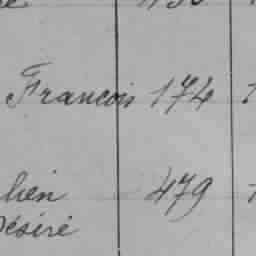 François 174
lien 479
Désiré